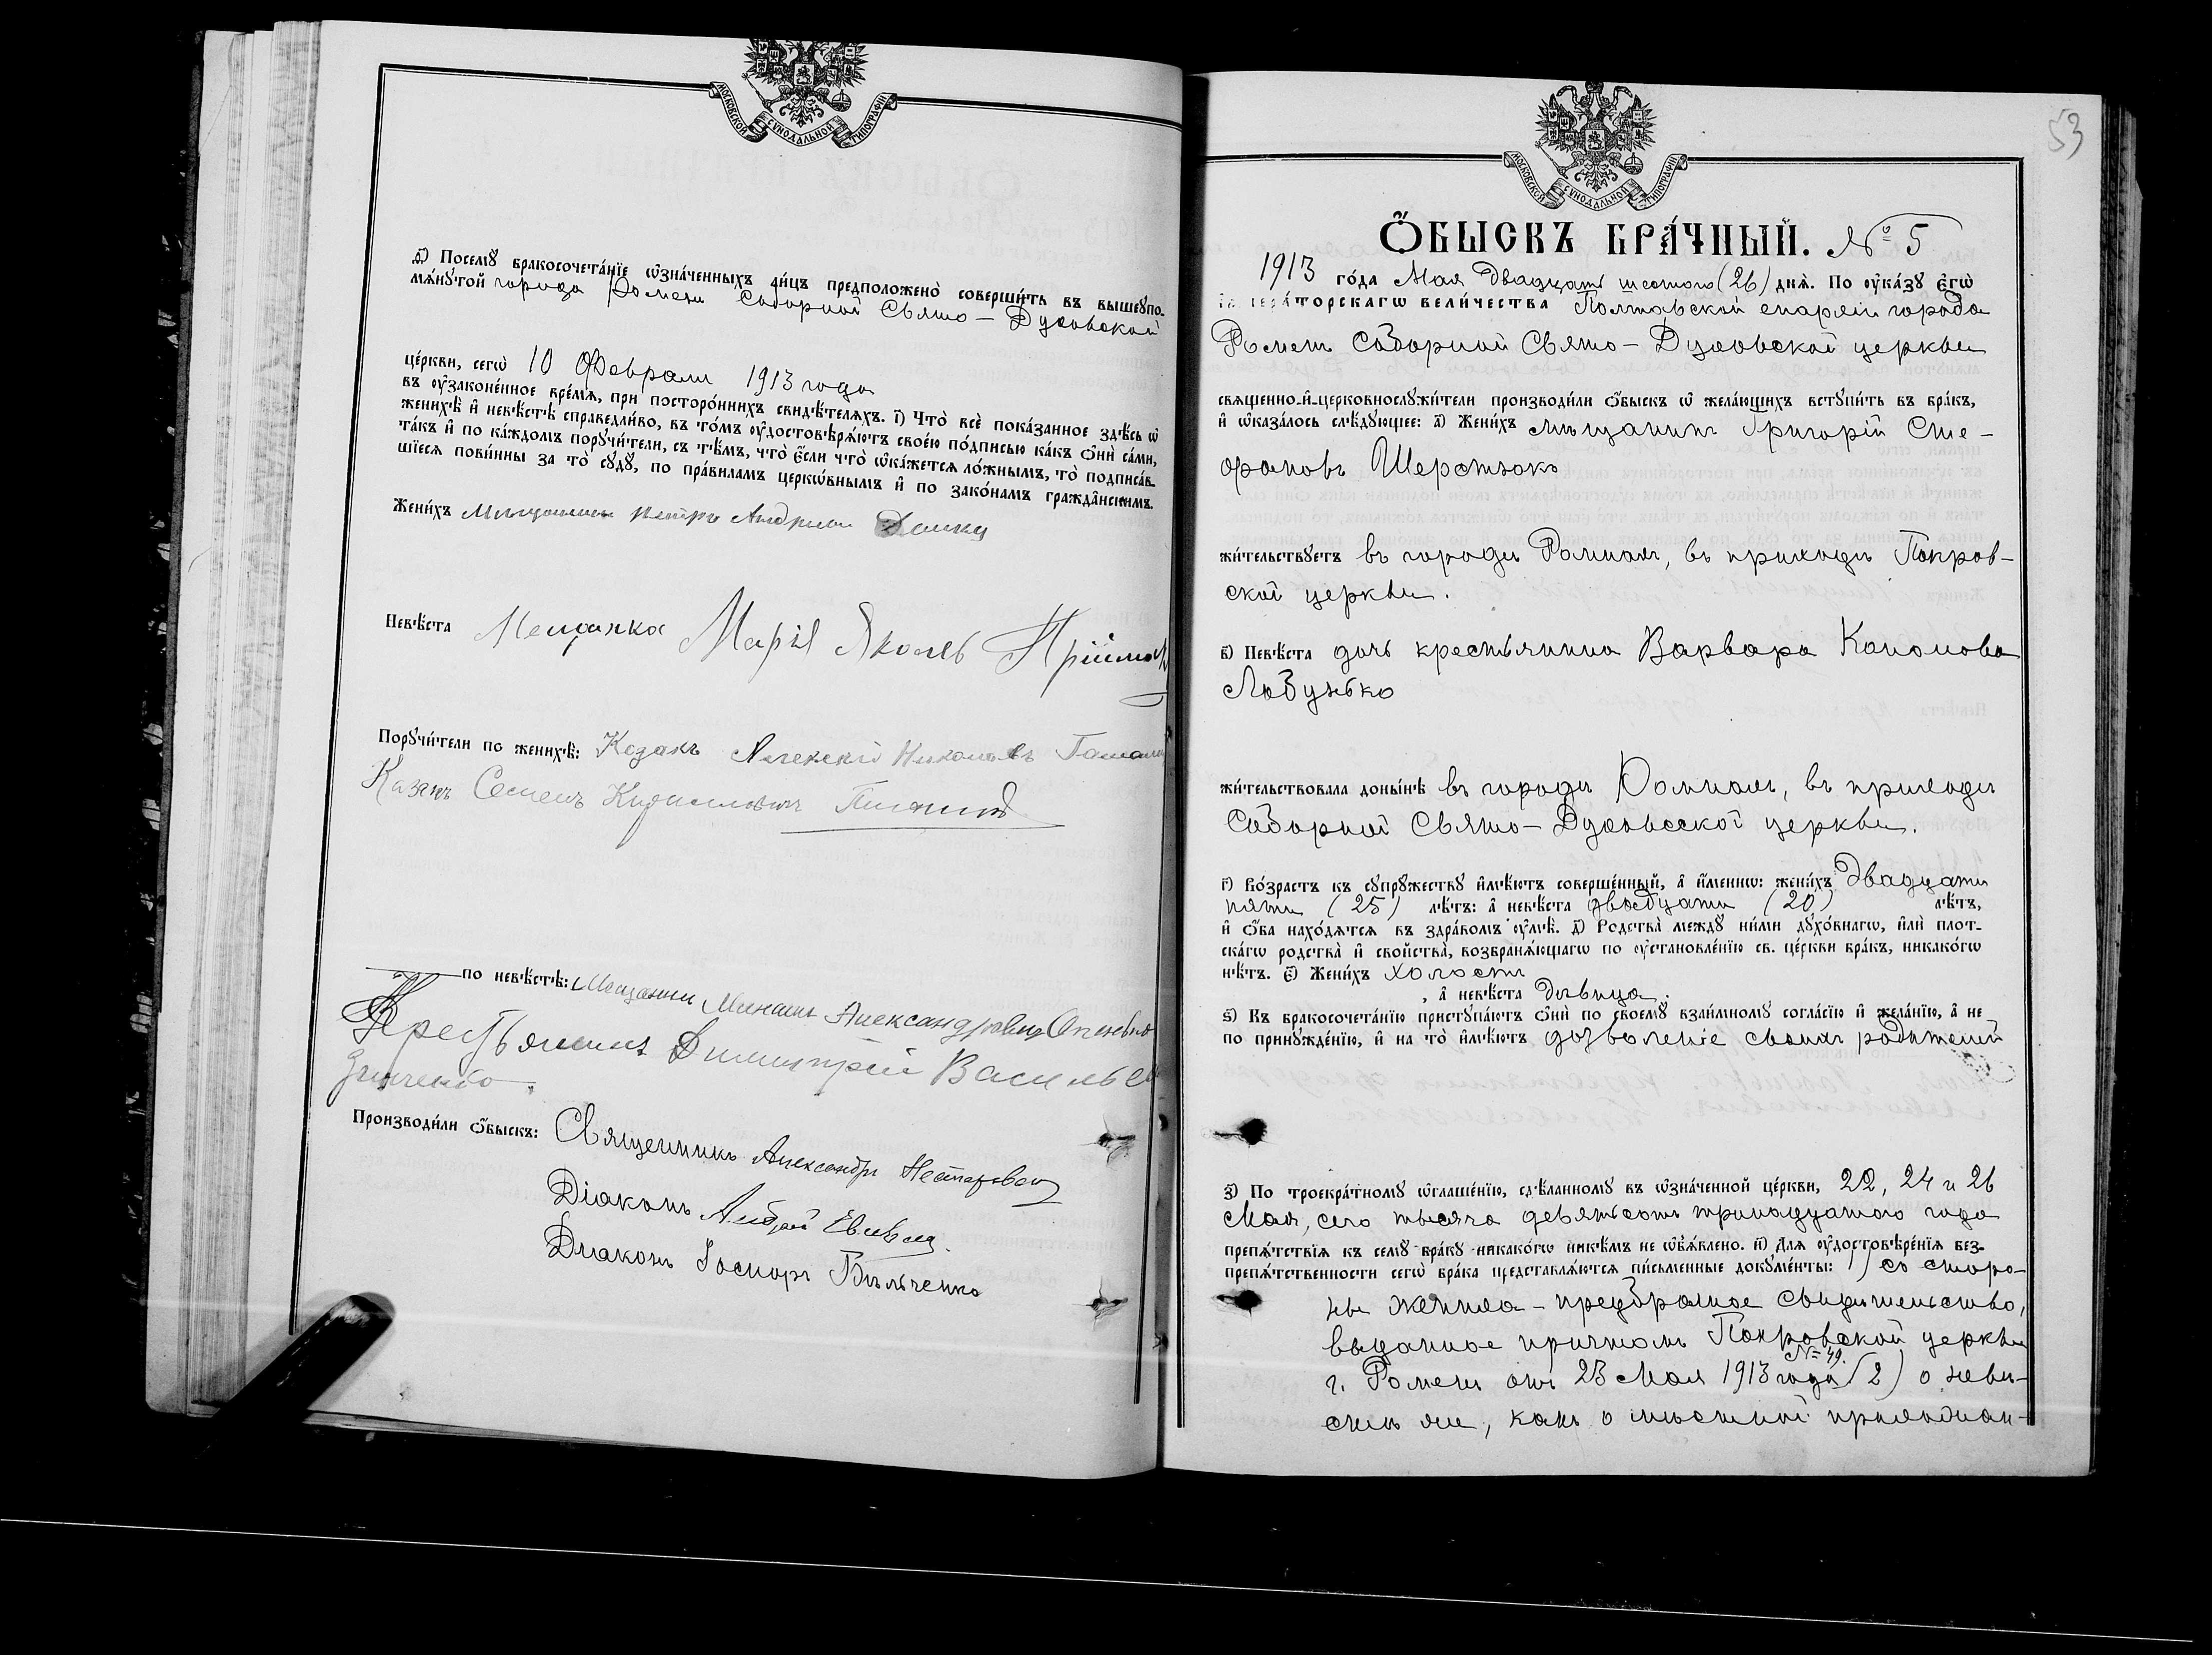 МОСКОВСКОЙ СѴНОДАЛЬНОЙ ТИПОГРАФІИ
ѳ҃) Посемꙋ бракосочета́нїе ѡ҆зна́ченныхъ ли́цъ предположено̀ соверши́ть въ вышеꙋпо-
мѧ́нꙋтой города Ромень Соборной Свято-Духовской
це́ркви, сегѡ̀ 10 Февраля 1913 года
въ ᲂу҆законе́нное вре́мѧ, при посторо́ннихъ свидѣ́телѧхъ. і҃) Что̀ всѐ пока́занное здѣ́сь ѡ҆
женихѣ̀ и҆ невѣ́стѣ справедли́во, въ то́мъ ᲂу҆достовѣрѧ́ютъ свое́ю по́дписью ка́къ ѻ҆нѝ са́ми,
та́къ и҆ по ка́ждомъ порꙋчи́тели, съ тѣ́мъ, что̀ є҆́сли что̀ ѡ҆ка́жетсѧ ло́жнымъ, то̀ подписа́в-
шїесѧ пови́нны за то̀ сꙋдꙋ̀, по пра́виламъ церко́внымъ и҆ по зако́намъ гражда́нскимъ.
Жени́хъ Мещанинъ Петръ Андреев
Невѣ́ста Мещанка Марія Яковлев
Порꙋчи́тели по женихѣ̀: Козакъ Алексій Николаевъ
Казакъ Семенъ Кириллович
по невѣ́стѣ: Мещанин Михаил Александрович
Крестьянинъ Димитрій Василье
Зинченко
Производи́ли ѻ҆́быскъ: Священникъ Александръ Нестеровскій
Діаконъ Андрей
Діаконъ Іосифъ Бѣльченко
53
МОСКОВСКОЙ СѴНОДАЛЬНОЙ ТИПОГРАФІИ
Ѻ҆́БЫСКЪ БРА́ЧНЫЙ. № 5
1913 го́да Мая Двадцать шестого (26) днѧ̀. По ᲂу҆ка́зꙋ є҆гѡ̀
и҆мпера́торскагѡ вели́чества Полтавской епархіи города
Роменъ Соборной Свято-Духовской церкви
свѧщенно-и҆-церковнослꙋжи́тели производи́ли ѻ҆́быскъ ѡ҆ жела́ющихъ встꙋпи́ть въ бра́къ,
и҆ ѡ҆каза́лось слѣ́дꙋющее: а҃) Жени́хъ мѣщанинъ Григорій Сте-
фановъ Шерстюкъ
жи́тельствꙋетъ въ городѣ Ромнахъ, въ приходѣ Покров-
ской церкви.
в҃) Невѣ́ста дочь крестьянина Варвара Кононова
Лобунько
жи́тельствовала донынѣ въ городѣ Ромнахъ, въ приходѣ
Соборной Свято-Духовской церкви.
г҃) Во́зрастъ къ сꙋпрꙋ́жествꙋ и҆мѣ́ютъ соверше́нный, а҆ и҆́меннѡ: жени́хъ двадцати
пяти (25) лѣ́тъ: а҆ невѣ́ста двадцати (20) лѣ́тъ,
и҆ ѻ҆́ба нахо́дѧтсѧ въ здра́вомъ ᲂу҆мѣ̀. д҃) Родства̀ междꙋ ни́ми дꙋхо́внагѡ, и҆лѝ плот-
ска́гѡ родства̀ и҆ сво́йства̀, возбранѧ́ющагѡ по ᲂу҆становле́нїю св. це́ркви бра́къ, никако́гѡ
нѣ́тъ. є҃) Жени́хъ холостъ
, а҆ невѣ́ста дѣвица.
ѕ҃) Къ бракосочета́нїю пристꙋпа́ютъ ѻ҆нѝ по своемꙋ̀ взаи́мномꙋ согла́сїю и҆ жела́нїю, а҆ не
по принꙋжде́нїю, и҆ на то̀ и҆мѣ́ютъ дозволеніе своихъ родителей
з҃) По троекра́тномꙋ ѡ҆глаше́нїю, сдѣ́ланномꙋ въ ѡ҆зна́ченной це́ркви, 22, 24 и 26
Мая, сего тысяча девятьсотъ тринадцатого года
препѧ́тствїѧ къ семꙋ̀ бра́кꙋ никако́гѡ никѣ́мъ не ѡ҆б̾ѧ́влено. и҃) Для ᲂу҆достовѣре́нїѧ без-
препѧ́тственности сегѡ̀ бра́ка представлѧ́ютсѧ пи́сьменные докꙋме́нты: 1) со сторо-
ны жениха - предбрачное свидетельство,
выданное причтомъ Покровской церкви
г. Роменъ отъ 23 Мая 1913 года № 49. 2) о невѣ-
стѣ же, какъ о мѣстной прихожан-